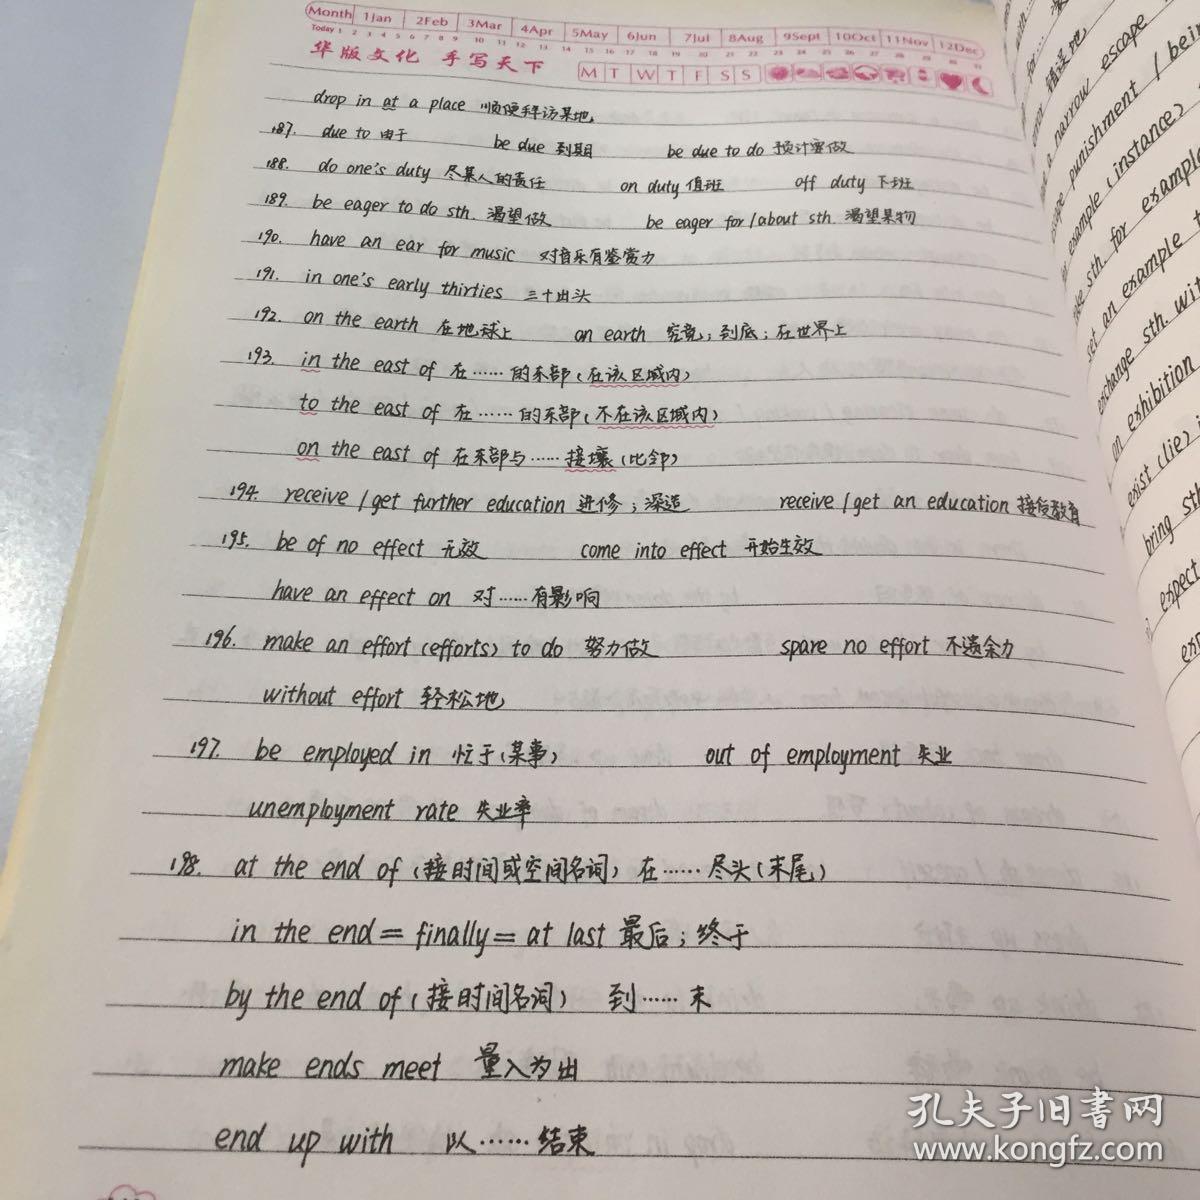 Month 1Jan 2Feb 3Mar 4Apr 5May 6Jun 7Jul 8Aug 9Sept 10Oct 11Nov 12Dec
Today 1 2 3 4 5 6 7 8 9 10 11 12 13 14 15 16 17 18 19 20 21 22 23 24 25 26 27 28 29 30 31
华版文化 手写天下 M T W T F S S
drop in at a place 顺便拜访某地
187. due to 由于 be due 到期 be due to do 预计要做
188. do one's duty 尽某人的责任 on duty 值班 off duty 下班
189. be eager to do sth. 渴望做 be eager for/about sth. 渴望某物
190. have an ear for music 对音乐有鉴赏力
191. in one's early thirties 三十出头
192. on the earth 在地球上 on earth 究竟；到底；在世界上
193. in the east of 在……的东部(在该区域内)
to the east of 在……的东部(不在该区域内)
on the east of 在东部与……接壤(比邻)
194. receive/get further education 进修；深造 receive/get an education 接受教育
195. be of no effect 无效 come into effect 开始生效
have an effect on 对……有影响
196. make an effort (efforts) to do 努力做 spare no effort 不遗余力
without effort 轻松地
197. be employed in 忙于(某事) out of employment 失业
unemployment rate 失业率
198. at the end of (接时间或空间名词) 在……尽头(末尾)
in the end = finally = at last 最后；终于
by the end of (接时间名词) 到……末
make ends meet 量入为出
end up with 以……结束
错误地
a narrow escape
escape punishment / bein
for example (instance)
take sth. for example
set an example t
exchange sth. wit
on exhibition
exist (lie) i
bring sth
expect
孔夫子旧书网
www.kongfz.com